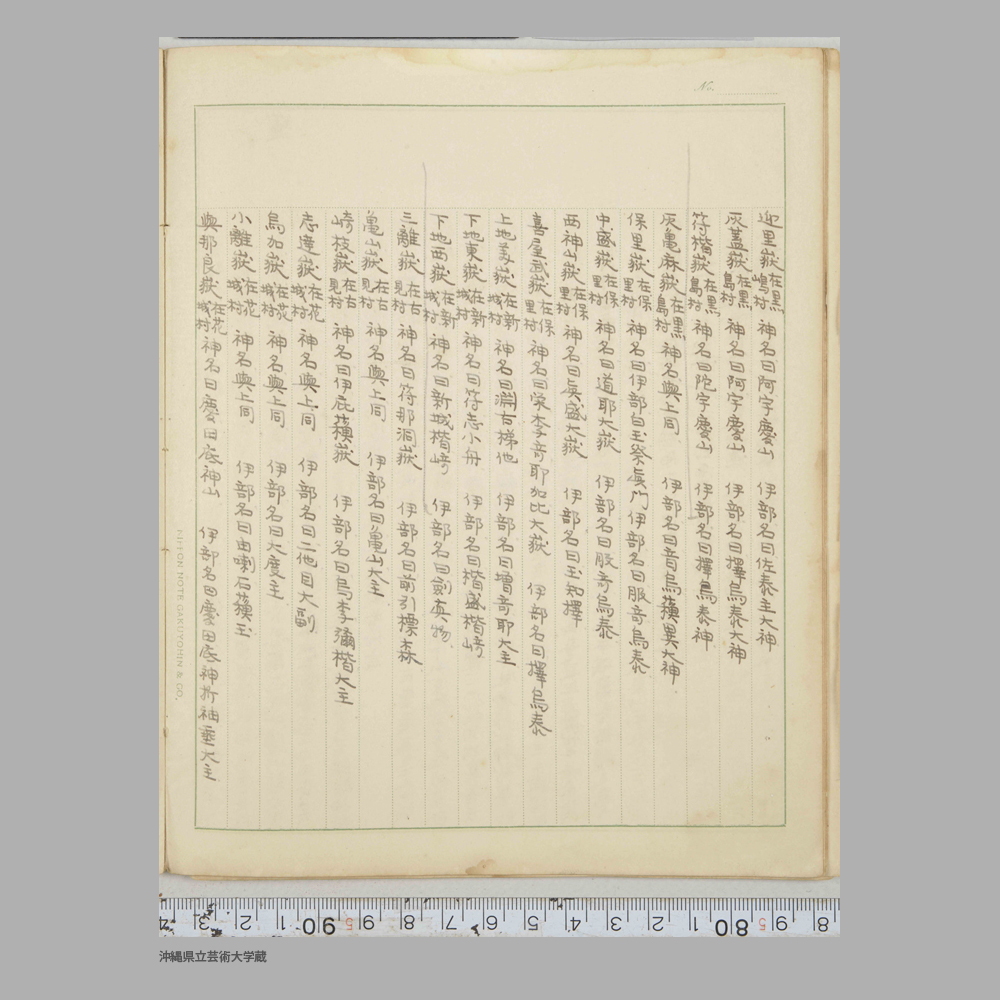 No.
迎里嶽 在黒嶋村 神名曰阿字慶山 伊部名曰佐泰主大神
灰蓋嶽 在黒島村 神名曰阿字慶山 伊部名曰擇烏泰大神
符楷嶽 在黒島村 神名曰陀字慶山 伊部名曰擇烏泰神
灰亀麻嶽 在黒島村 神名與上同 伊部名曰音烏蘋異大神
保里嶽 在保里村 神名曰伊部白玉祭眞門 伊部名曰服音烏泰
中盛嶽 在保里村 神名曰道耶大嶽 伊部名曰股斎烏泰
西神山嶽 在保里村 神名曰眞盛大嶽 伊部名曰玉知擇
喜屋武嶽 在保里村 神名曰栄李音耶如比大嶽 伊部名曰擇烏泰
上地美嶽 在新城村 神名曰淵右梯他 伊部名曰増音耶大主
下地東嶽 在新城村 神名曰符志小舟 伊部名曰楷盛楷﨑
下地西嶽 在新城村 神名曰新城楷﨑 伊部名曰劔真物
三離嶽 在古見村 神名曰符那洞嶽 伊部名曰前引標森
亀山嶽 在古見村 神名與上同 伊部名曰亀山大主
﨑枝嶽 在古見村 神名曰伊庇蘋嶽 伊部名曰烏李彌楷大主
志達嶽 在花城村 神名與上同 伊部名曰二他目大副
烏加嶽 在花城村 神名與上同 伊部名曰大慶主
小離嶽 在花城村 神名與上同 伊部名曰由喇石蘋玉
與那良嶽 在花城村 神名曰慶田底神山 伊部名曰慶田底神折袖垂大主
NIPPON NOTE GAKUYOHIN & CO.
4 3 2 1 90 5 9 8 7 6 5 4 3 2 1 80 5 9 8
沖縄県立芸術大学蔵